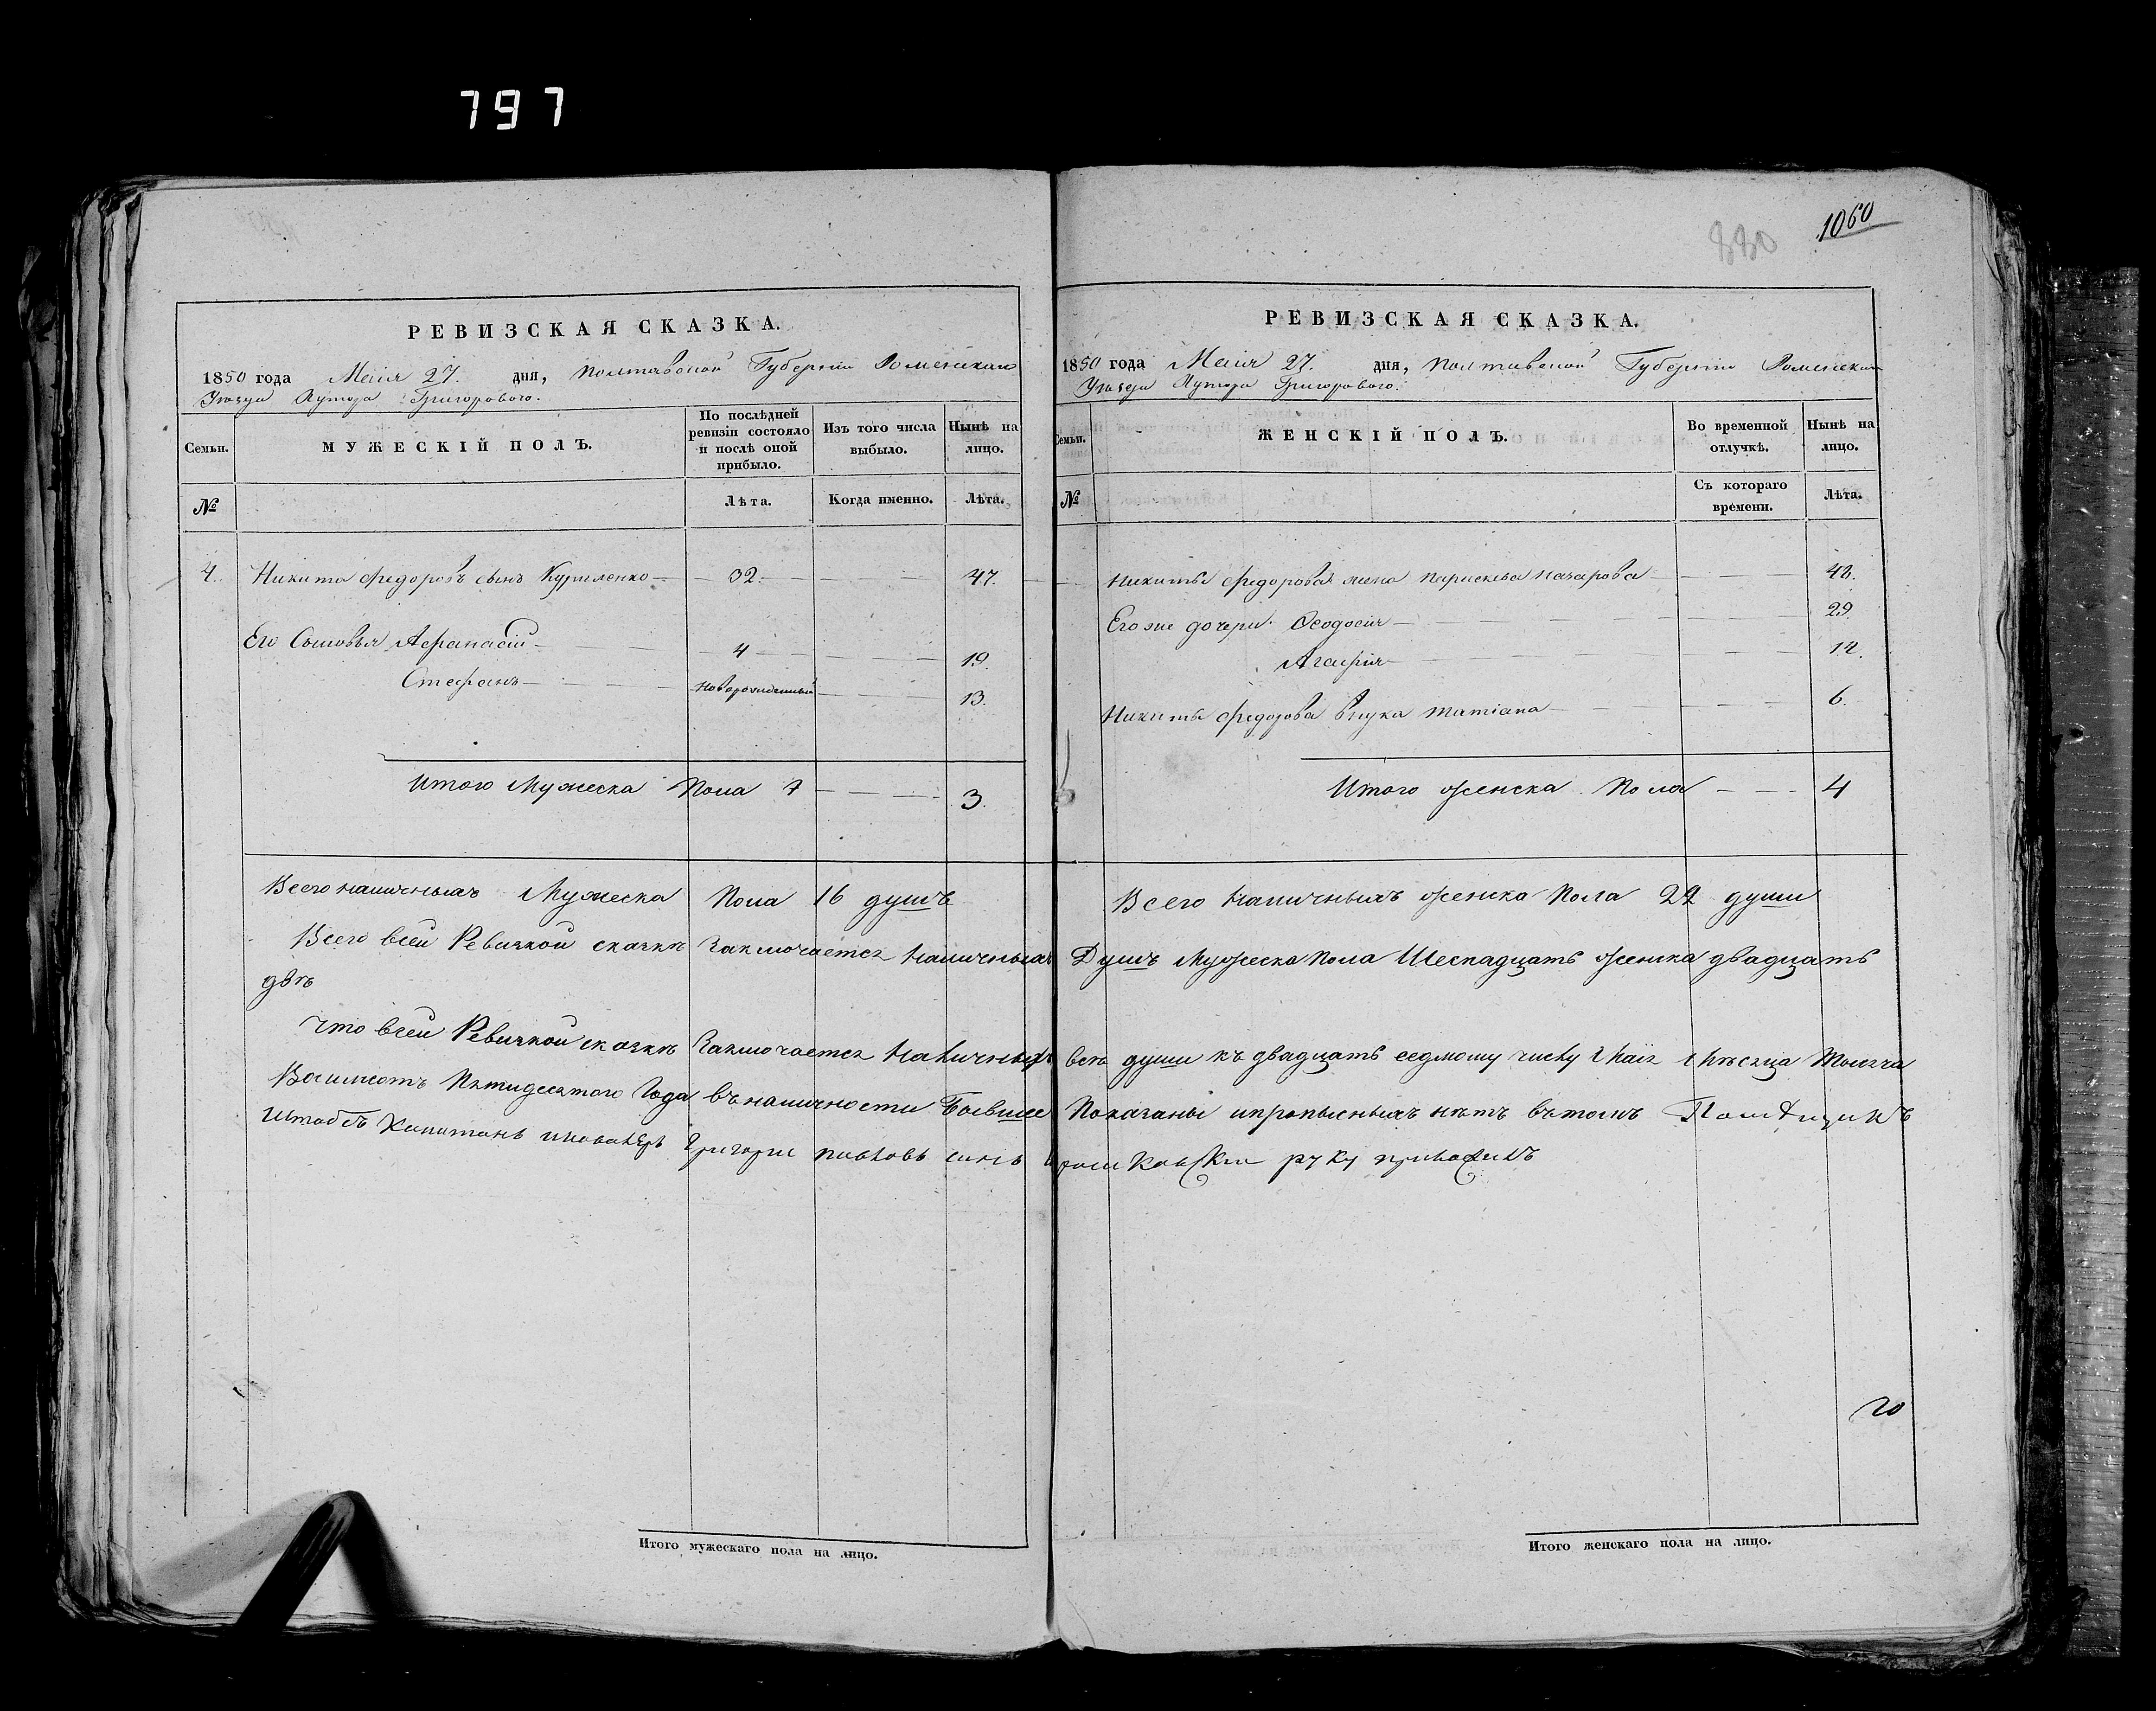 797
1060
880
РЕВИЗСКАЯ СКАЗКА.
1850 года Маія 27. дня, Полтавской Губерніи Роменскаго
Уезда Хутора Григорового.
Семьи.
МУЖЕСКІЙ ПОЛЪ.
По послѣдней ревизіи состояло и послѣ оной прибыло.
Изъ того числа выбыло.
Нынѣ на лицо.
№
Лѣта.
Когда именно.
Лѣта.
4. Никита Федоровъ сынъ Куриленко 32. 47.
Его Сыновья Афанасій 4 19.
Стефанъ Новорожденный 13.
Итого Мужеска Пола 3.
Всего наличныхъ Мужеска Пола 16 душъ
РЕВИЗСКАЯ СКАЗКА.
1850 года Маія 27. дня, Полтавской Губерніи Роменскаго
Уезда Хутора Григорового.
Семьи.
ЖЕНСКІЙ ПОЛЪ.
Во временной отлучкѣ.
Нынѣ на лицо.
№
Съ котораго времени.
Лѣта.
Никиты Федорова жена Параскева Назарова 48.
Его же дочери Феодосія 29.
Агафія 12.
Никиты Федорова внука Татіана 6.
Итого женска Пола 4
Всего Наличныхъ женска Пола 22 души
Всего всей Ревизкой сказкѣ Заключается Наличныхъ Душъ Мужеска Пола Шеснадцать женска двадцать
двѣ
Что всей Ревизкой сказкѣ Заключается Наличныхъ всѣ души къ двадцать седмому числу Маія Мѣсяца Тысяча
Восимсотъ Пятидесятого Года въ наличности Бывшее Показаны и прописныхъ нѣтъ въ томъ Помѣщикъ
Штабсъ Капитанъ и кавалеръ Григори Павловъ синъ руку приложилъ
20
Итого мужескаго пола на лицо.
Итого женскаго пола на лицо.